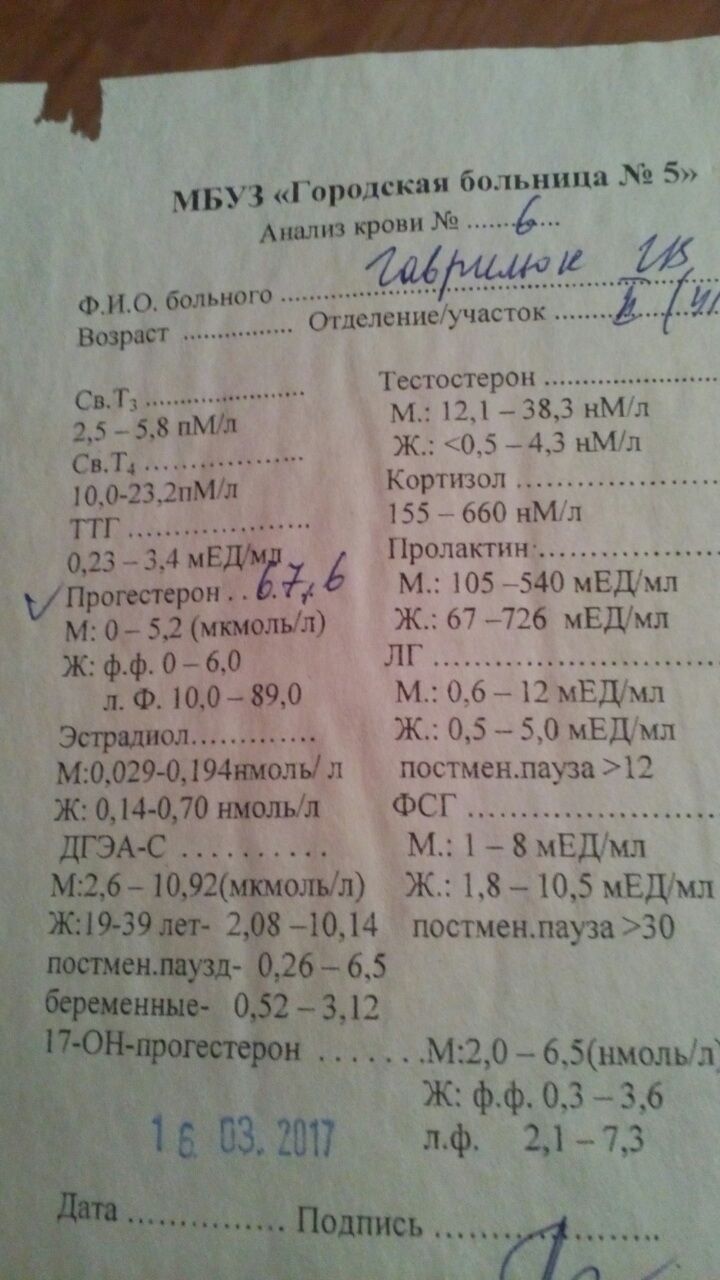 МБУЗ «Городская больница № 5»
Анализ крови № ......6...
Ф.И.О. больного ........ Гаврилюк
Возраст ............... Отделение/участок ........... II
Св.Т3 ......................
2,5 – 5,8 пМ/л
Св.Т4 ....................
10,0-23,2пМ/л
ТТГ .......................
0,23 – 3,4 мЕД/мл
Прогестерон . . 67,6
М: 0 – 5,2 (мкмоль/л)
Ж: ф.ф. 0 – 6,0
л. Ф. 10,0 – 89,0
Эстрадиол...............
М:0,029-0,194нмоль/ л
Ж: 0,14-0,70 нмоль/л
ДГЭА-С ..........
М:2,6 – 10,92(мкмоль/л)
Ж:19-39 лет- 2,08 –10,14
постмен.паузд- 0,26 – 6,5
беременные- 0,52 – 3,12
Тестостерон ........................
М.: 12,1 – 38,3 нМ/л
Ж.: <0,5 – 4,3 нМ/л
Кортизол ...........................
155 – 660 нМ/л
Пролактин.........................
М.: 105 –540 мЕД/мл
Ж.: 67 –726 мЕД/мл
ЛГ ...................................
М.: 0,6 – 12 мЕД/мл
Ж.: 0,5 – 5,0 мЕД/мл
постмен.пауза >12
ФСГ ...............................
М.: 1 – 8 мЕД/мл
Ж.: 1,8 – 10,5 мЕД/мл
постмен.пауза >30
17-ОН-прогестерон .......М:2,0 – 6,5(нмоль/л)
Ж: ф.ф. 0,3 – 3,6
л.ф. 2,1 – 7,3
16 03. 2017
Дата ................ Подпись .......................